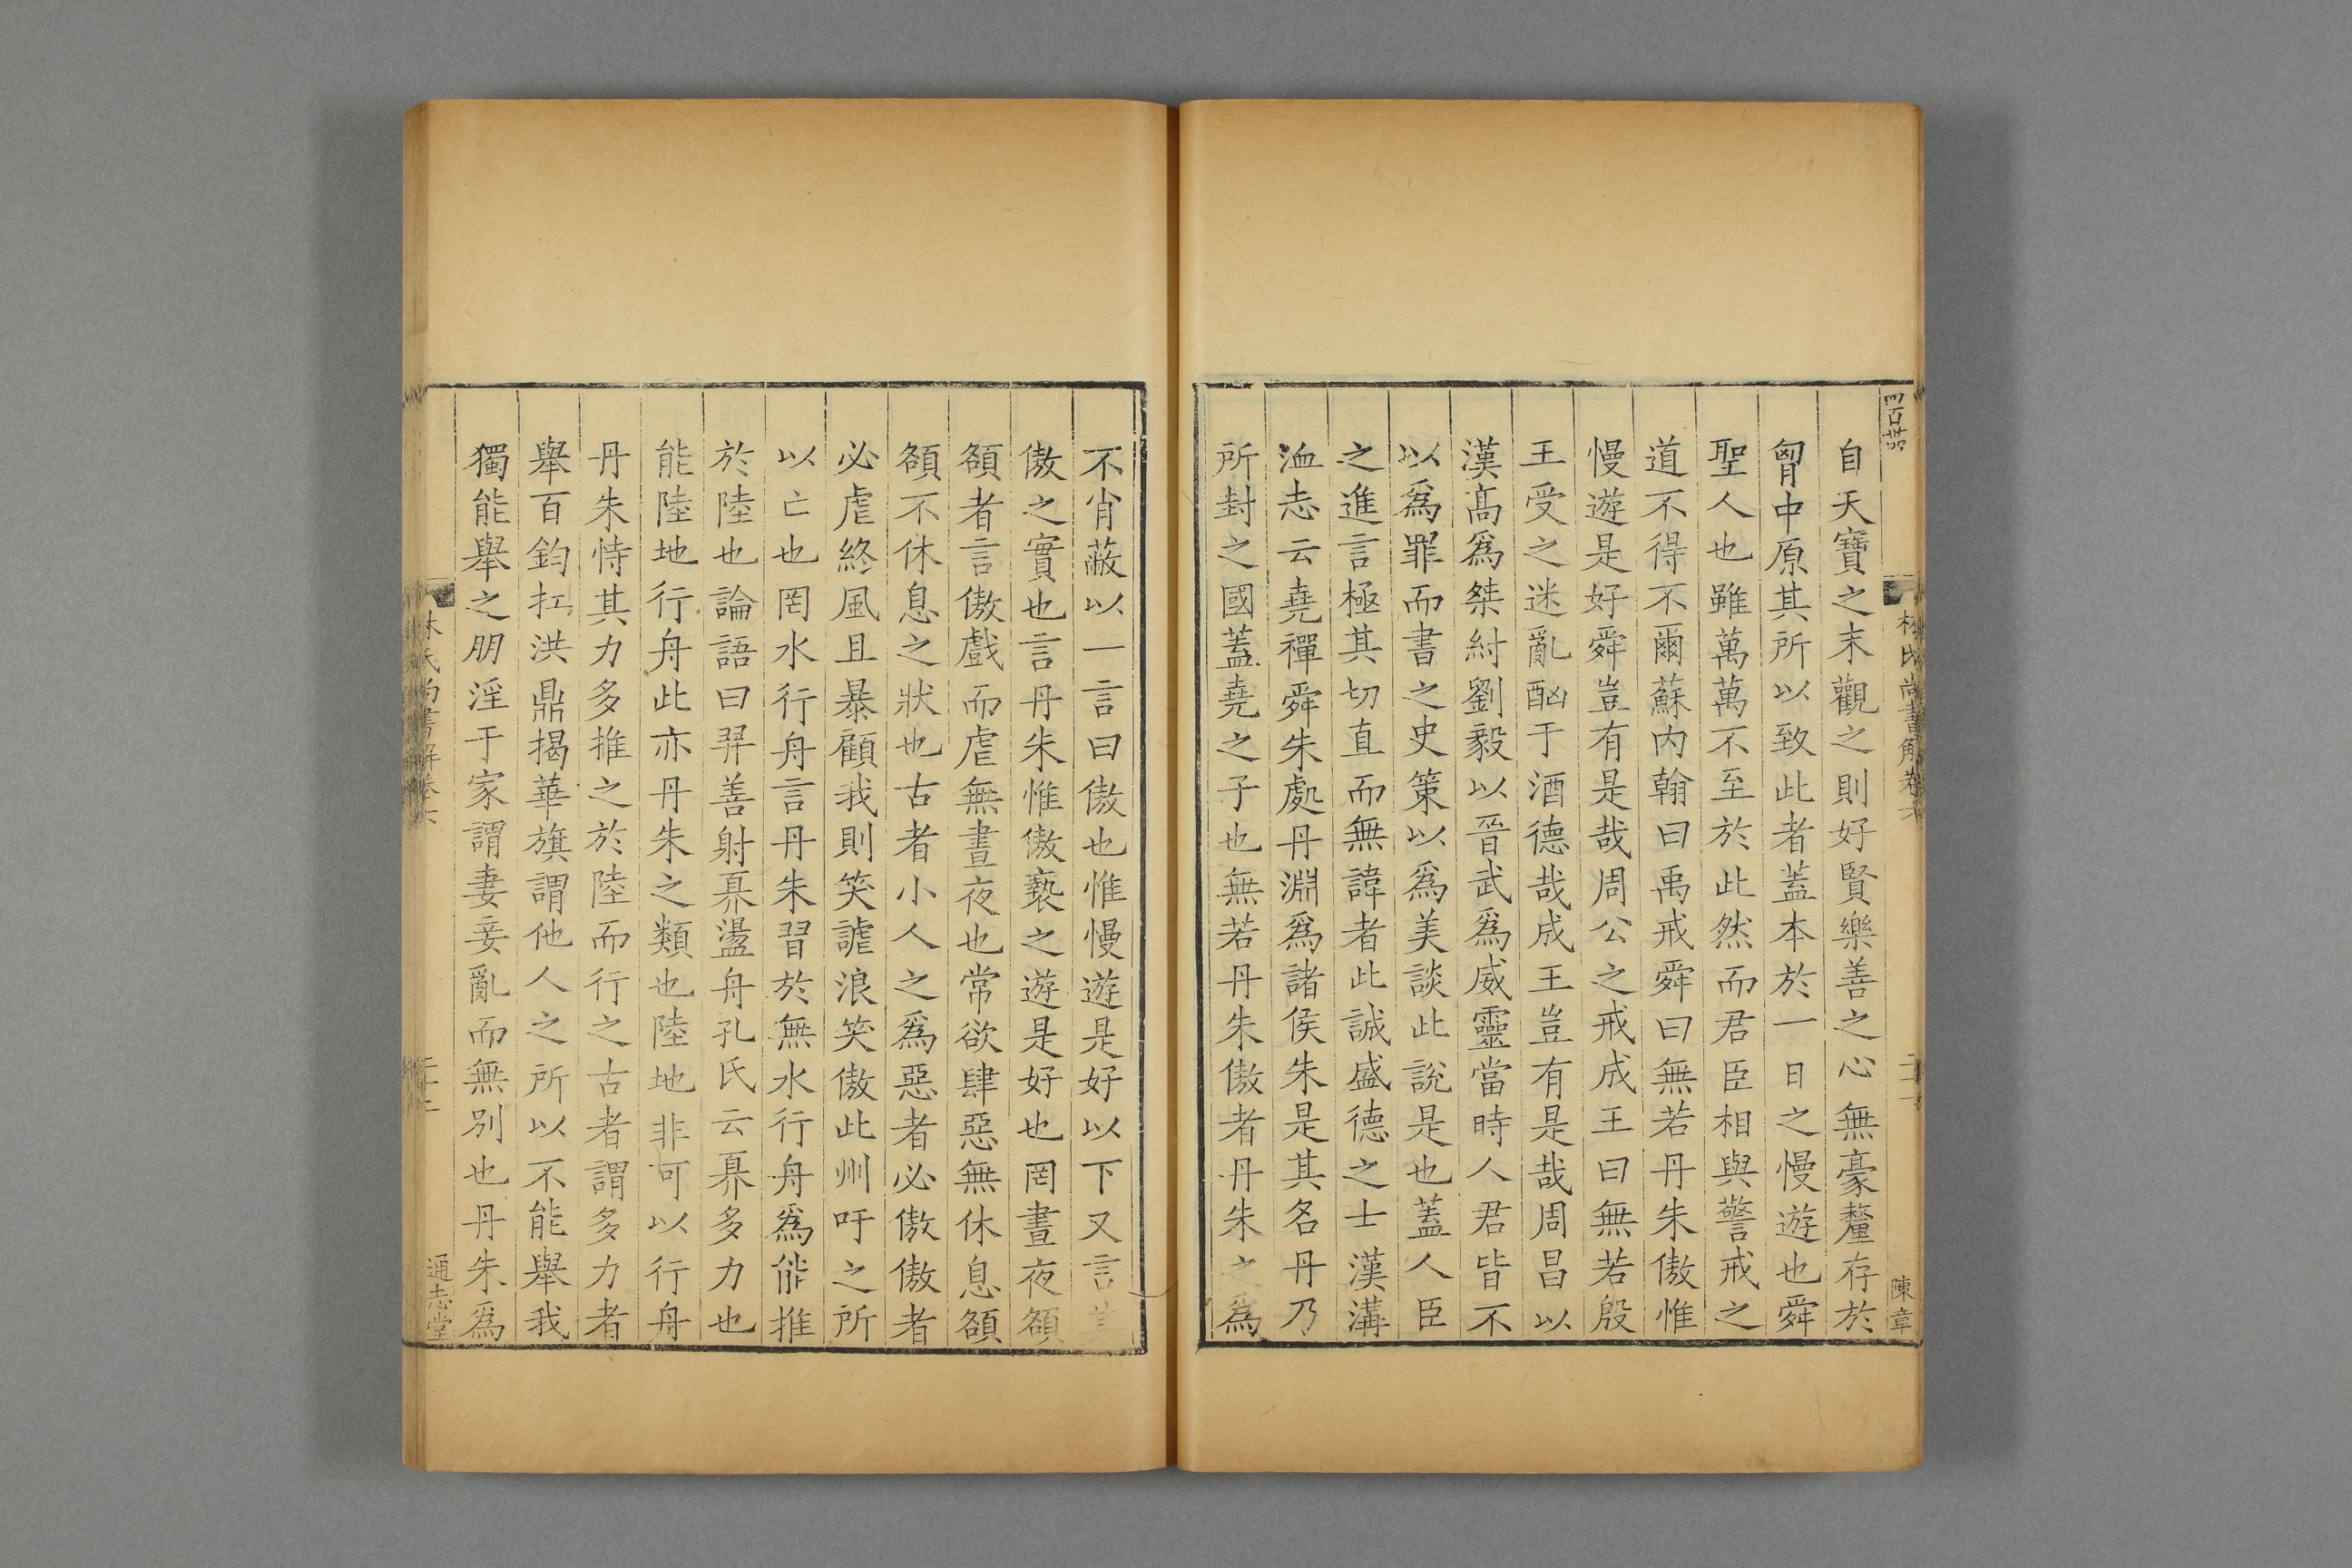 自天寶之末觀之則好賢樂善之心無豪釐存於
匈中原其所以致此者蓋本於一日之慢遊也舜
聖人也雖萬萬不至於此然而君臣相與警戒之
道不得不爾蘇内翰曰禹戒舜曰無若丹朱傲惟
慢遊是好舜豈有是哉周公之戒成王曰無若殷
王受之迷亂酗于酒德哉成王豈有是哉周昌以
漢髙爲桀紂劉毅以晉武爲威靈當時人君皆不
以爲罪而書之史策以爲美談此說是也蓋人臣
之進言極其切直而無諱者此誠盛德之士漢溝
洫志云堯禪舜朱處丹淵爲諸侯朱是其名丹乃
所封之國蓋堯之子也無若丹朱傲者丹朱之爲
林氏尚書解卷六
陳章
不肖蔽以一言曰傲也惟慢遊是好以下又言其
傲之實也言丹朱惟傲褻之遊是好也罔晝夜頟
頟者言傲戲而虐無晝夜也常欲肆惡無休息頟
頟不休息之狀也古者小人之爲惡者必傲傲者
必虐終風且暴顧我則笑謔浪笑傲此州吁之所
以亡也罔水行舟言丹朱習於無水行舟爲能推
於陸也論語曰羿善射奡盪舟孔氏云奡多力也
能陸地行舟此亦丹朱之類也陸地非可以行舟
丹朱恃其力多推之於陸而行之古者謂多力者
舉百鈞扛洪鼎揭華旗謂他人之所以不能舉我
獨能舉之朋淫于家謂妻妾亂而無別也丹朱爲
林氏尚書解卷六
通志堂